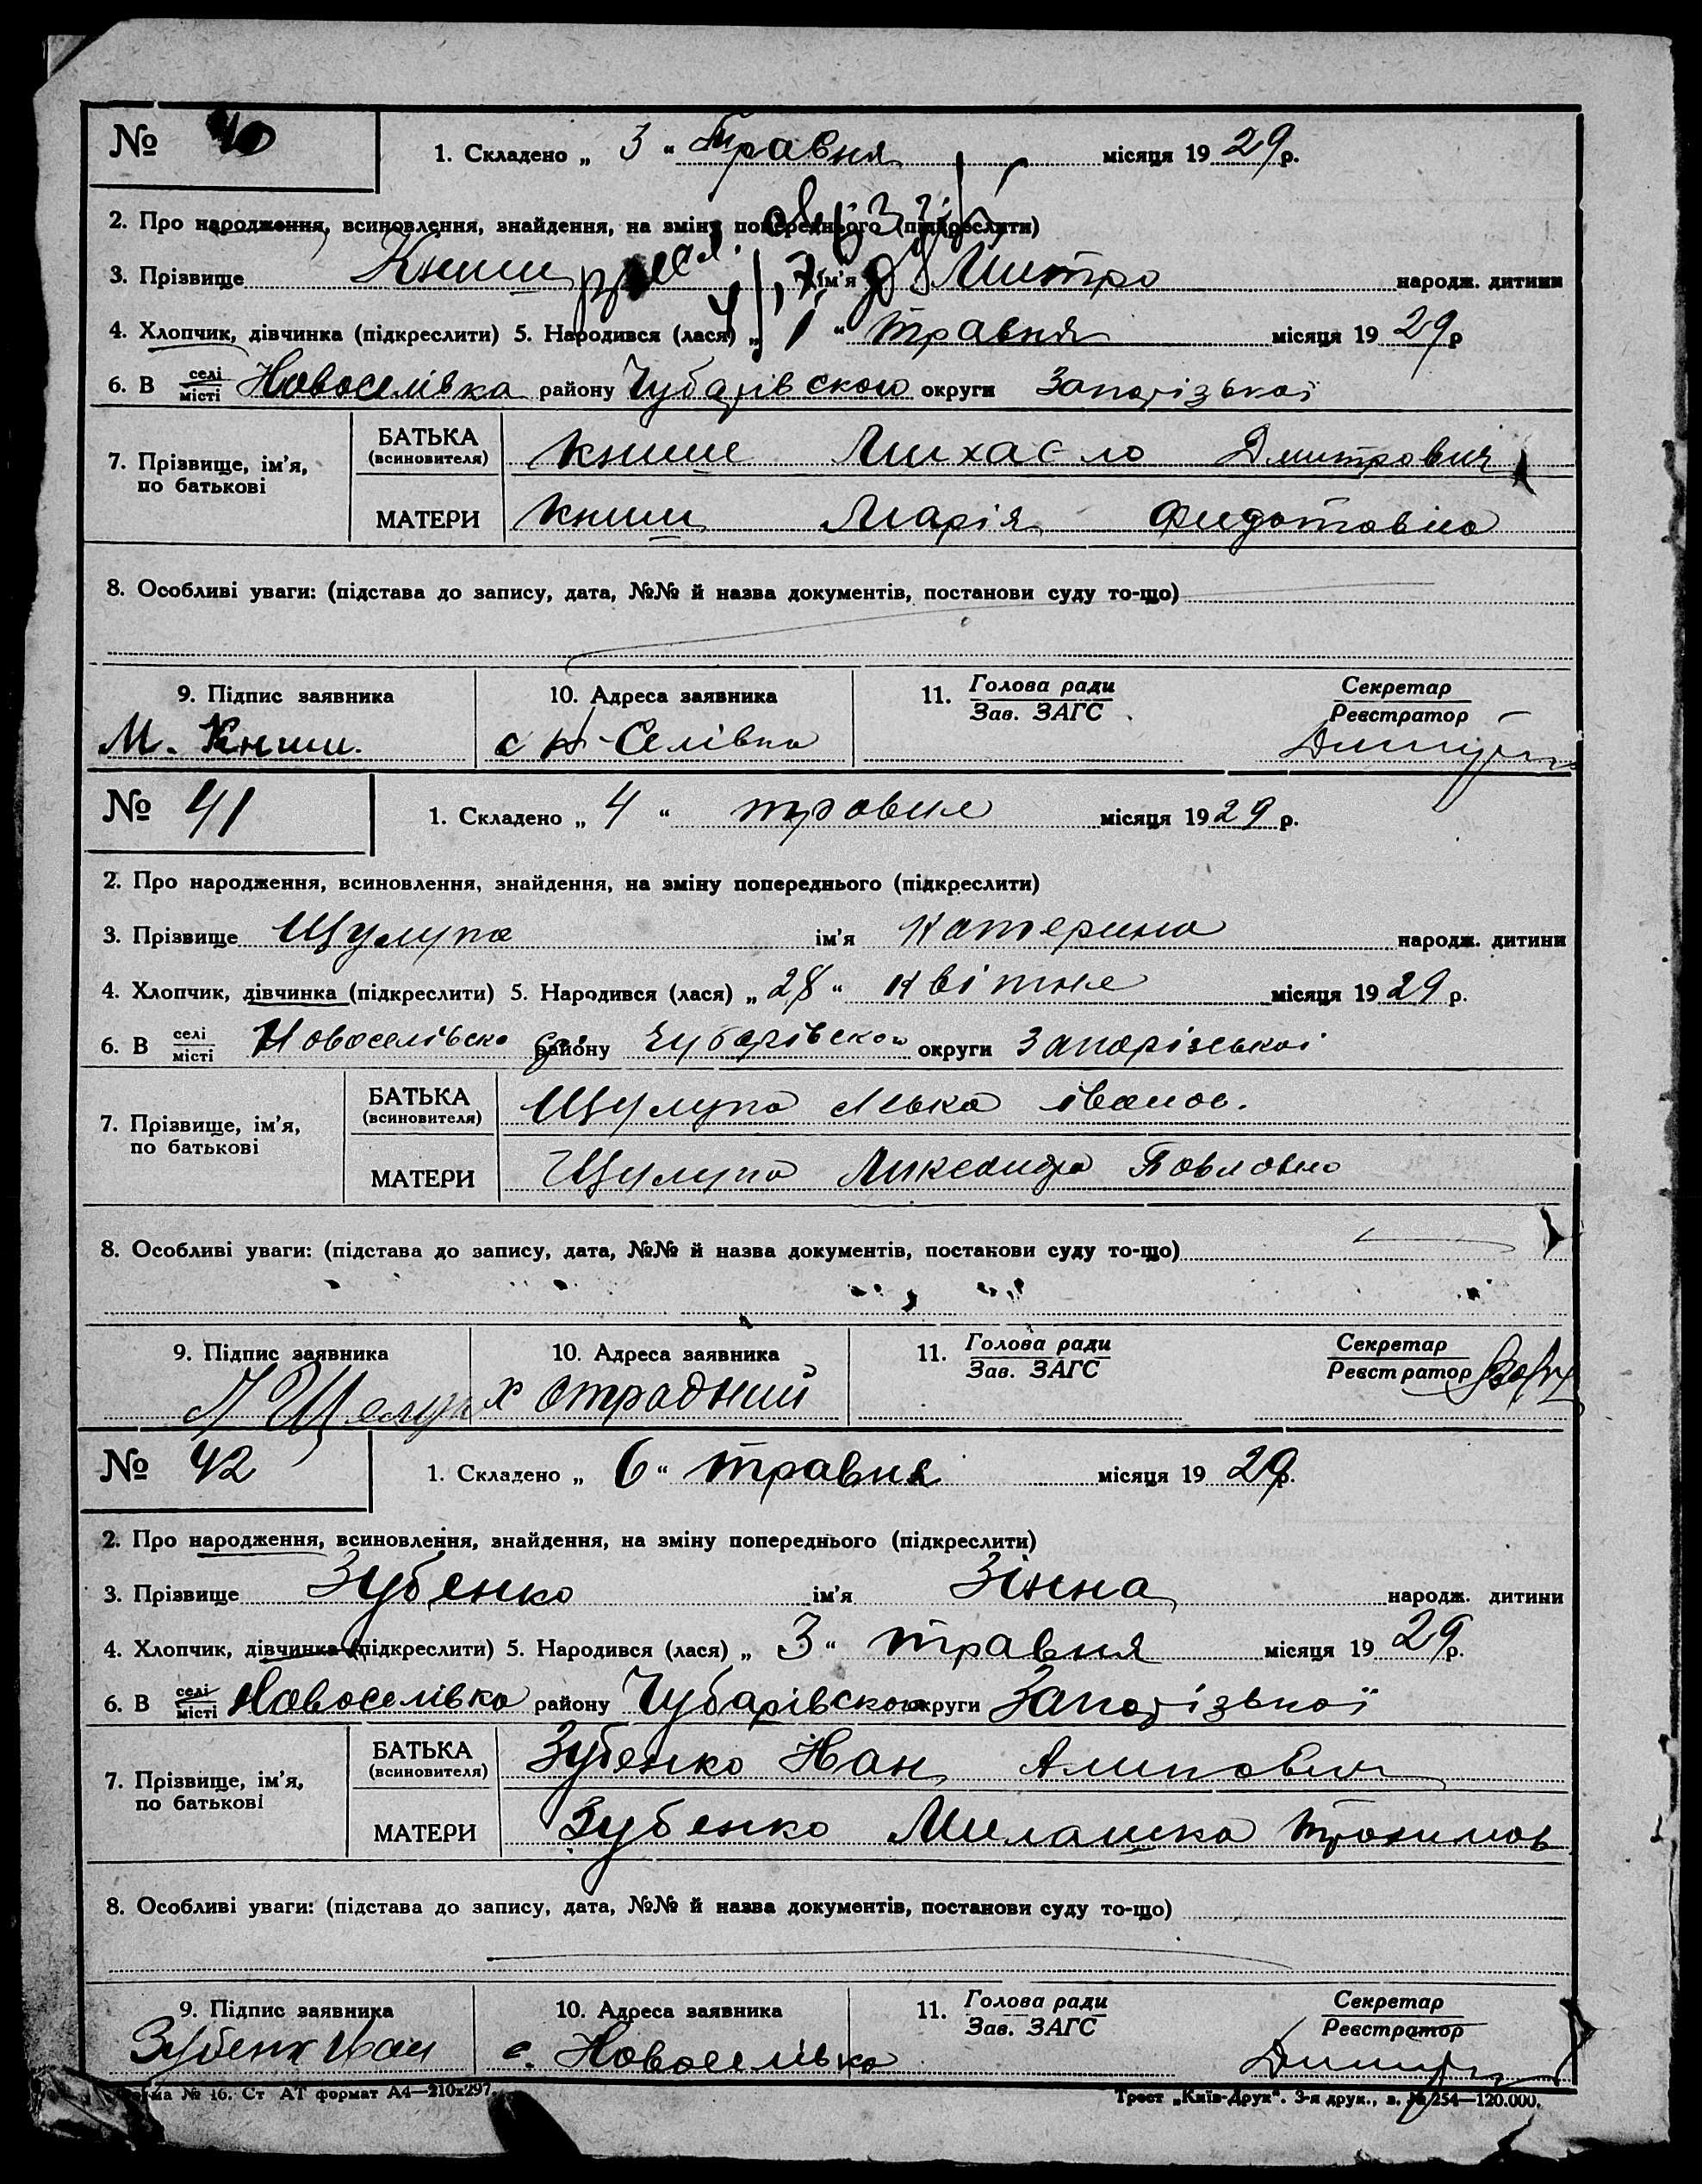 № 40 1. Складено „ 3 “ травня місяця 1929р.
2. Про народження, всиновлення, знайдення, на зміну попереднього (підкреслити)
3. Прізвище Книш ім'я Дмитро народж. дитини
4. Хлопчик, дівчинка (підкреслити) 5. Народився (лася) „ 1 “ травня місяця 1929р
6. В селі місті Новоселівка району Чубарівского округи Запорізької
7. Прізвище, ім'я, по батькові
БАТЬКА (всиновителя) Книше Михасло Дмитрович
МАТЕРИ Книш Марія Федотовна
8. Особливі уваги: (підстава до запису, дата, №№ й назва документів, постанови суду то-що)
9. Підпис заявника 10. Адреса заявника 11. Голова ради Зав. ЗАГС Секретар Реєстратор
М. Книш. с Н-Селівка
№ 41 1. Складено „ 4 “ травня місяця 1929 р.
2. Про народження, всиновлення, знайдення, на зміну попереднього (підкреслити)
3. Прізвище Щулупа ім'я Катерина народж. дитини
4. Хлопчик, дівчинка (підкреслити) 5. Народився (лася) „ 28 “ квітня місяця 1929 р.
6. В селі місті Новоселівско району Чубарівском округи Запорізькоі
7. Прізвище, ім'я, по батькові
БАТЬКА (всиновителя) Щулупа Левка іванов.
МАТЕРИ Щулупа Ликсандра Павловна
8. Особливі уваги: (підстава до запису, дата, №№ й назва документів, постакови суду то-що)
9. Підпис заявника 10. Адреса заявника 11. Голова ради Зав. ЗАГС Секретар Реєстратор
х Отрадний
№ 42 1. Складено „ 6 “ травня місяця 1929р.
2. Про народження, всиновлення, знайдення, на зміну попереднього (підкреслити)
3. Прізвище Зубенко ім'я Зінна народж. дитини
4. Хлопчик, дівчинка (підкреслити) 5. Народився (лася) „ 3 “ травня місяця 1929р.
6. В селі місті Новоселівка району Чубарівского округи Запорізької
7. Прізвище, ім'я, по батькові
БАТЬКА (всиновителя) Зубенко Иван Алипович
МАТЕРИ Зубенко Милашка Трохимов
8. Особливі уваги: (підстава до запису, дата, №№ й назва документів, постанови суду то-що)
9. Підпис заявника 10. Адреса заявника 11. Голова ради Зав. ЗАГС Секретар Реєстратор
Зубенк Иван с. Новоселівка
№ 16. Ст АТ формат А4—210х297. Трест „Київ-Друк“. 3-я друк., з. № 254—120.000.